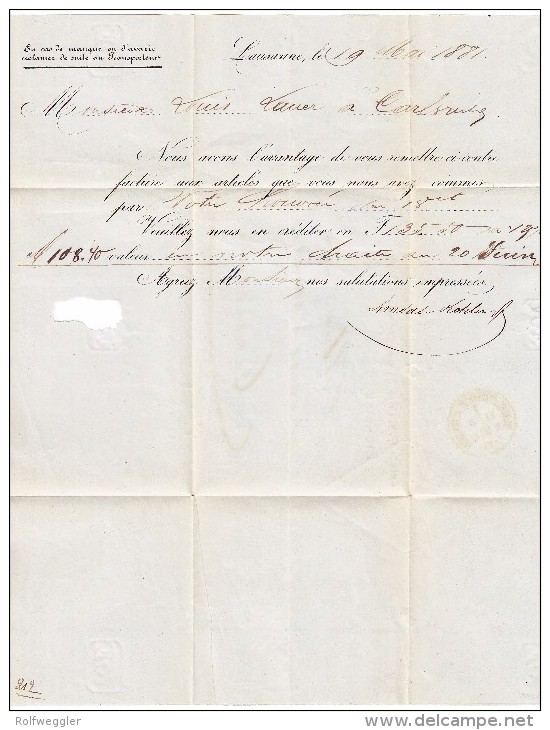 En cas de manque ou d'avarie
réclamer de suite au Transporteur
Lausanne, le 19 Mai 1881.
Monsieur Louis Lauer à Carlsruhe
Nous avons l'avantage de vous remettre ci-contre
facture aux articles que vous nous avez commis
par Votre honorée du
Veuillez nous en créditer en F 135.50
108.40 valeur en notre traite au 20 Juin
Agréez, Monsieur, nos salutations empressées,
Amédée Kohler
212
Rolfweggler
delcampe.net